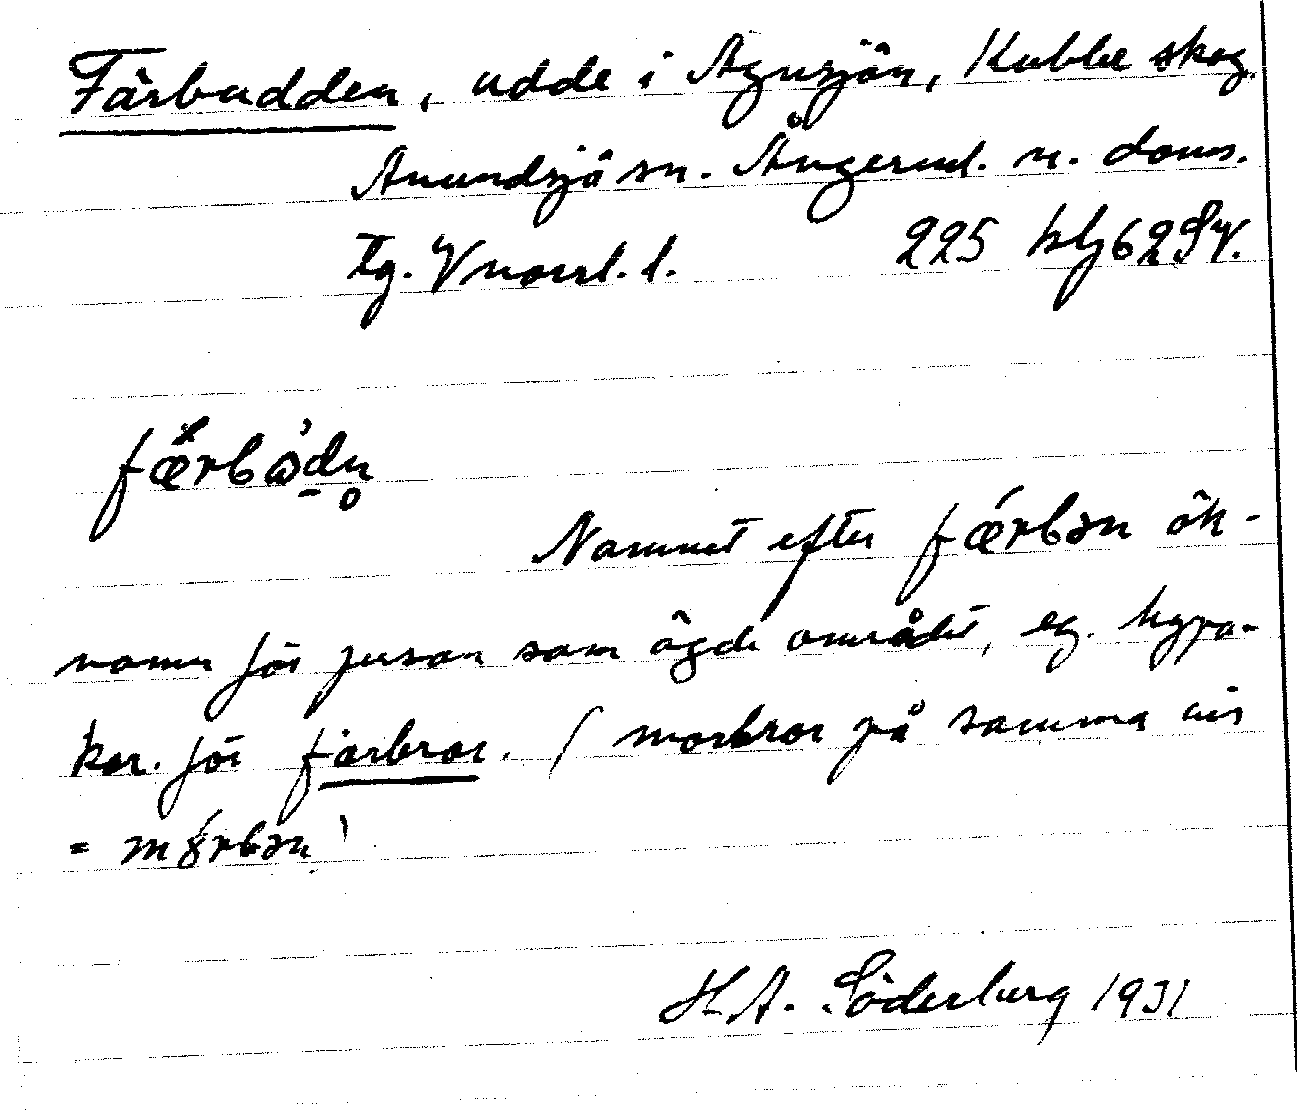 Färbudden, udde i Agnsjön, Kubbe skog.
Anundsjö sn. Ångerml. n. doms.
Tg. Vnorrl. l. 225 blj62SV.
Namnet efter færbən ök-
namn för person som ägde området, eg. hypo-
kor. för farbror. (morbror på samma vis
= mɷ́rbən)
H. A. Söderberg 1931